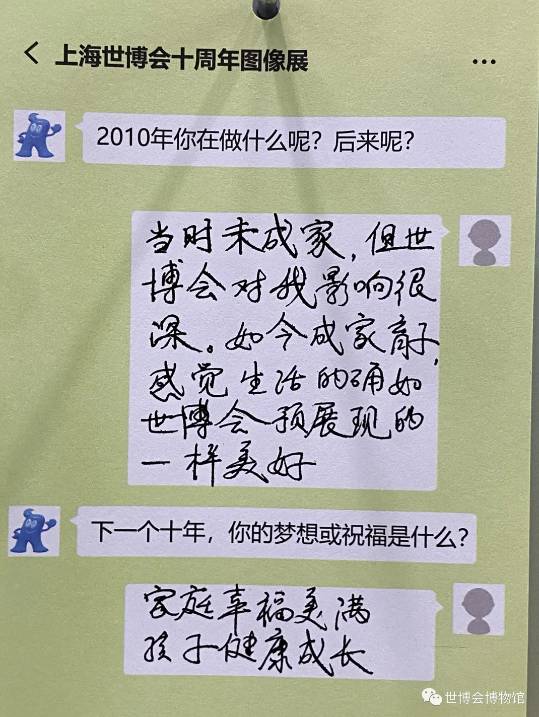 上海世博会十周年图像展
2010年你在做什么呢？后来呢？
当时未成家，但世
博会对我影响很
深。如今成家育子，
感觉生活的确如
世博会预展现的
一样美好
下一个十年，你的梦想或祝福是什么？
家庭幸福美满
孩子健康成长
世博会博物馆